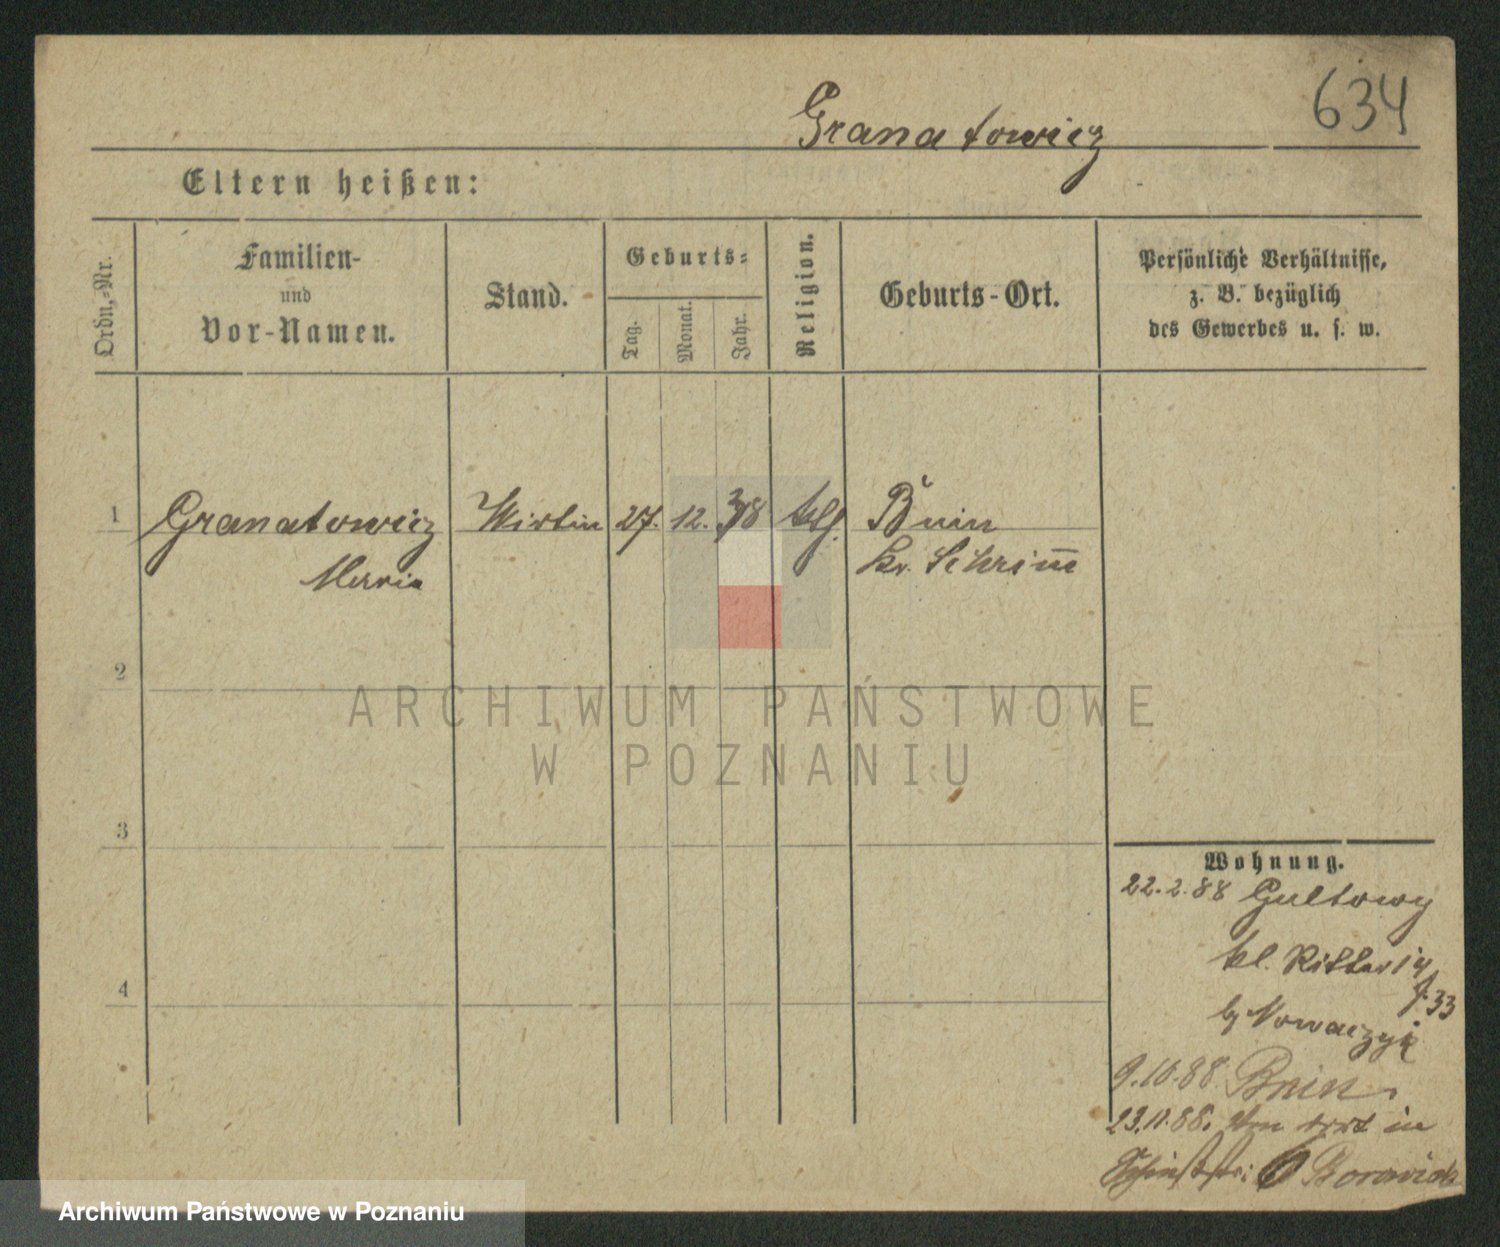 634
Granatowicz
Eltern heißen:
Ordn.-Nr.
Familien-
und
Vor-Namen.
Stand.
Geburts-
Tag.
Monat.
Jahr.
Religion.
Geburts-Ort.
Persönliche Verhältnisse,
z. B. bezüglich
des Gewerbes u. s. w.
1 Granatowicz Wirtin 27. 12. 38 kth. Bnin
Maria Kr. Schrim̅
2
3
4
Wohnung.
22.2.88 Gultowy
kl. Ritter 14
J. 33
by Nowaczyk
9.10.88 Bnin
23.11.88. Von dort in
6
ARCHIWUM PAŃSTWOWE
W POZNANIU
Archiwum Państwowe w Poznaniu